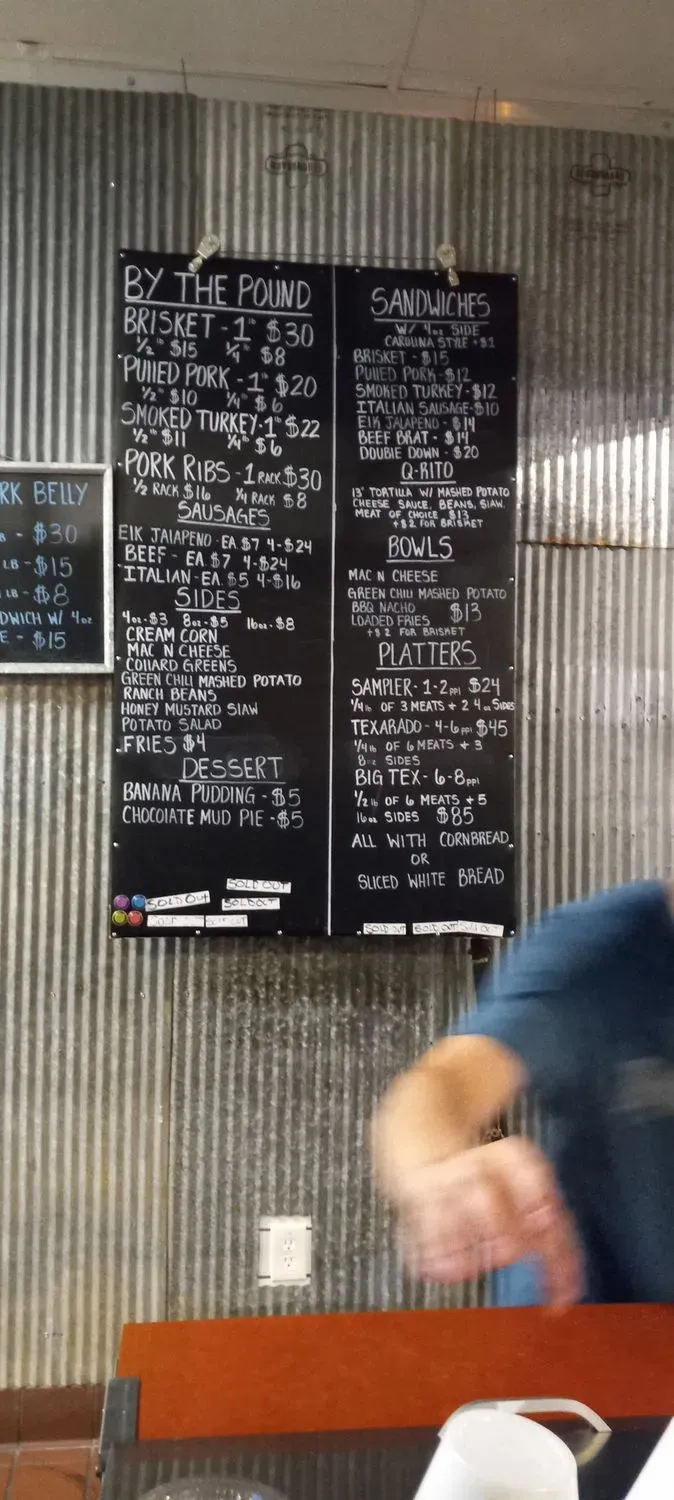 BY THE POUND
BRISKET - 1lb $30
1/2lb $15 1/4lb $8
PULLED PORK - 1lb $20
1/2lb $10 1/4lb $6
SMOKED TURKEY - 1lb $22
1/2lb $11 1/4lb $6
PORK RIBS - 1 RACK $30
1/2 RACK $16 1/4 RACK $8
SAUSAGES
ELK JALAPENO - EA $7 4-$24
BEEF - EA $7 4-$24
ITALIAN - EA $5 4-$16
SIDES
4oz-$3 8oz-$5 16oz-$8
CREAM CORN
MAC N CHEESE
COLLARD GREENS
GREEN CHILI MASHED POTATO
RANCH BEANS
HONEY MUSTARD SLAW
POTATO SALAD
FRIES $4
DESSERT
BANANA PUDDING - $5
CHOCOLATE MUD PIE - $5
SOLD OUT
SOLD OUT
SOLD OUT
SOLD OUT
SANDWICHES
W/ 4oz SIDE
CAROLINA STYLE +$1
BRISKET - $15
PULLED PORK - $12
SMOKED TURKEY - $12
ITALIAN SAUSAGE - $10
ELK JALAPENO - $14
BEEF BRAT - $14
DOUBLE DOWN - $20
Q-RITO
13" TORTILLA W/ MASHED POTATO
CHEESE SAUCE, BEANS, SLAW,
MEAT OF CHOICE $13
+$2 FOR BRISKET
BOWLS
MAC N CHEESE
GREEN CHILI MASHED POTATO
BBQ NACHO $13
LOADED FRIES
+$2 FOR BRISKET
PLATTERS
SAMPLER - 1-2ppl $24
1/4lb OF 3 MEATS + 2 4oz SIDES
TEXARADO - 4-6ppl $45
1/4lb OF 6 MEATS + 3
8oz SIDES
BIG TEX - 6-8ppl
1/2lb OF 6 MEATS + 5
16oz SIDES $85
ALL WITH CORNBREAD
OR
SLICED WHITE BREAD
SOLD OUT SOLD OUT SOLD OUT
RK BELLY
B - $30
LB - $15
LB - $8
DWICH W/ 4oz
E - $15